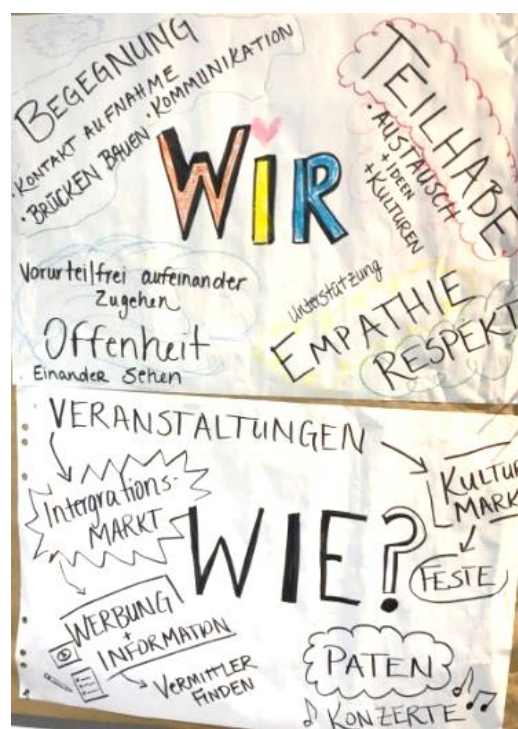 BEGEGNUNG
· KONTAKT AUFNAHME
· BRÜCKEN BAUEN · KOMMUNIKATION
TEILHABE
· AUSTAUSCH
+ IDEEN
+ KULTUREN
WIR
Vorurteilfrei aufeinander
Zugehen
Offenheit
Einander Sehen
Unterstützung
EMPATHIE
RESPEKT
VERANSTALTUNGEN
Intergrations-
MARKT
KULTUR
MARK
FESTE
WIE?
WERBUNG
+
INFORMATION
VERMITTLER
FINDEN
PATEN
KONZERTE